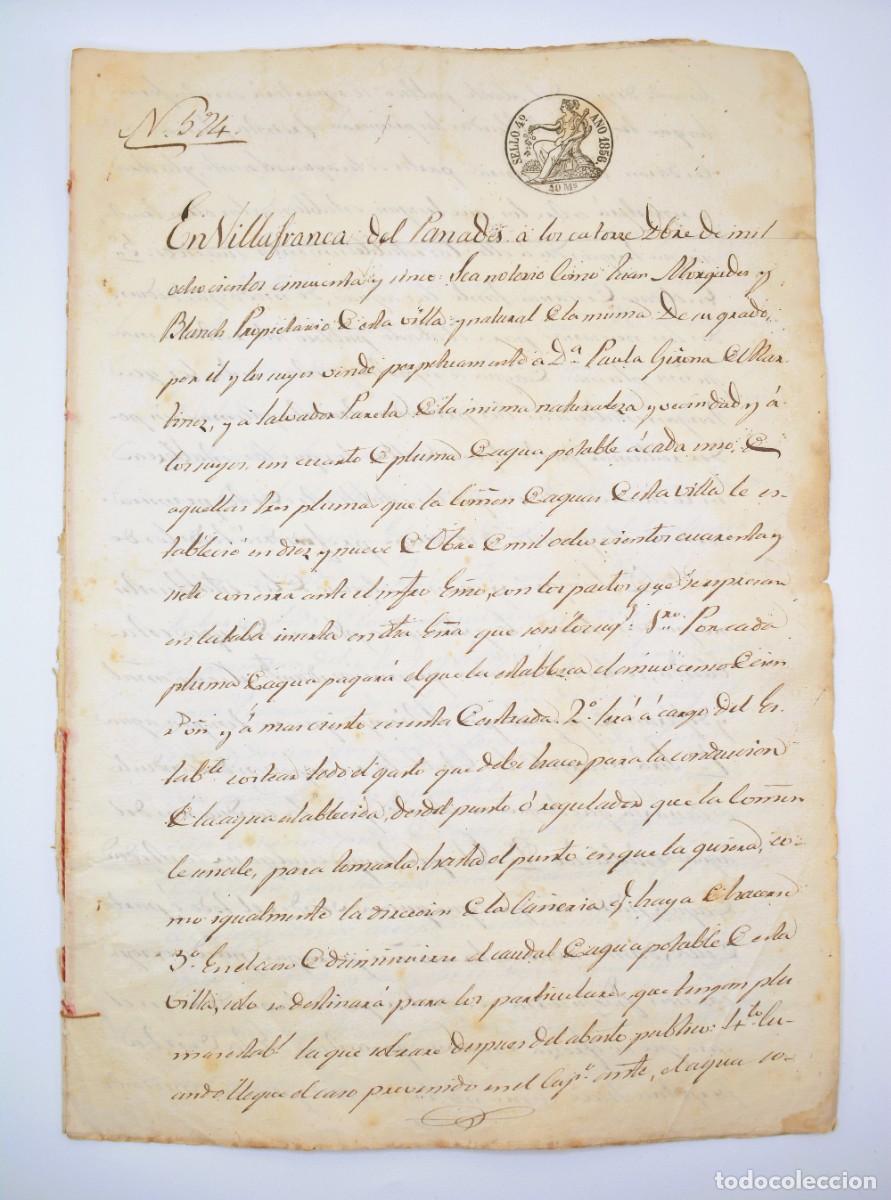 N. 524.
SELLO 4º AÑO 1856.
40 Ms
En Villafranca del Panadés á los catorse Dbre de mil
ochocientos cincuenta y cinco: Sea notorio como Juan Alvorgades y
Blanch Propietario de esta villa y natural de la misma De su grado,
por él y los suyos vende perpetuamente a Dª Paula Girona de Mar
tinez, y á Salvador Parela de la misma naturaleza y vecindad y á
los suyos, un cuarto de pluma de agua potable á cada uno, de
aquellas tres pluma que la Comon de aguas de esta villa le es-
tableció en diez y nueve de Obre de mil ochocientos cuarenta y
siete con escra ante el infro Esno, con los pactos que se espresan
en la taba inserta en dha Esra que son los sigs 1ro Por cada
pluma de agua pagará el que la establesca el cinco como de cien
y á mas ciento cuenta de entrada. 2º Será á cargo del Es-
tabte costear todo el gasto que debe hacer para la conduccion
de la agua establecida, desde el punto ó regulador que la Comon
le señale, para tomarla, hasta el punto en que la quiera, co-
mo igualmente la direccion de la Cañeria q. haya de hacerse
3º En el caso de disminuirse el caudal de agua potable de esta
villa, solo se destinará para los particulares que tengan plu
mas estabs la que sobrare despues del abasto publico: 4to Cu-
ando llegue el caso prevenido en el Capº ante, el agua so-
todocoleccion